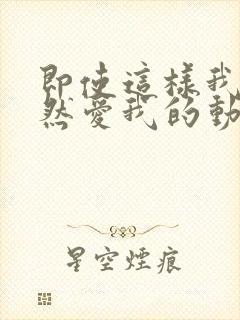 即使這樣我
然愛我的動
星空煙痕